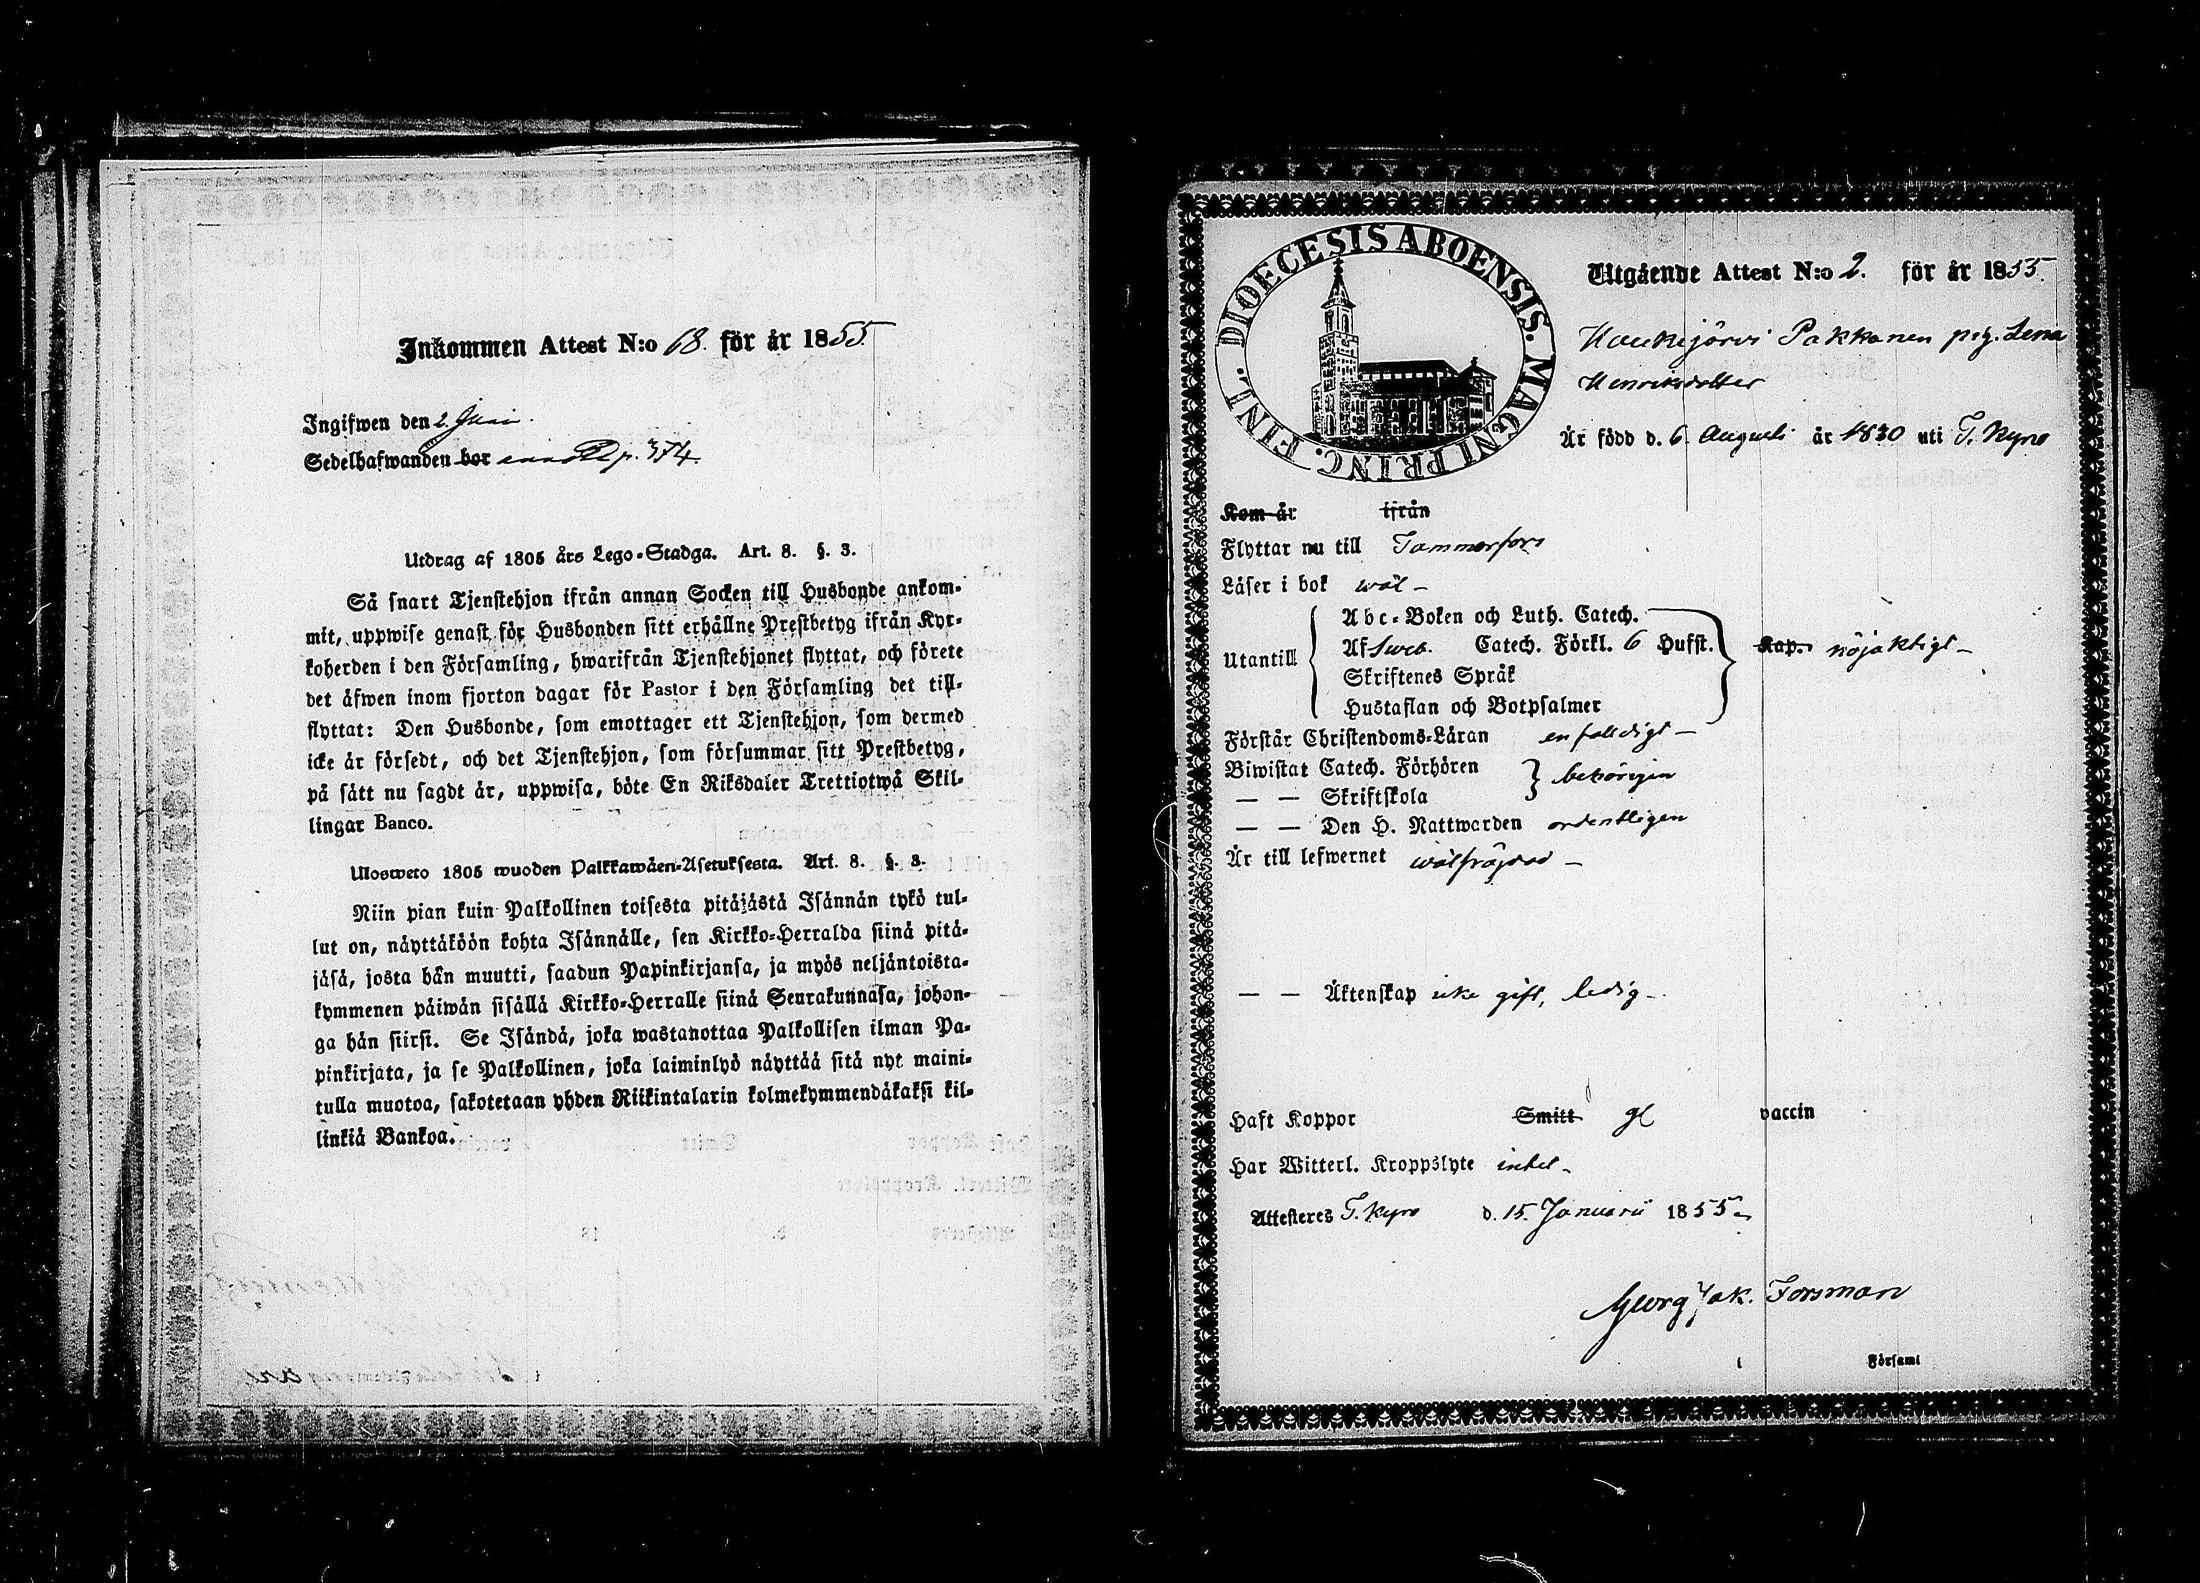 Inkommen Attest N:o 68. för år 1855.
Ingifwen den 2 Juni.
Sedelhafwanden bor p. 374.
Utdrag af 1805 års Lego-Stadga. Art. 8. §. 3.
Så snart Tjenstehjon ifrån annan Socken till Husbonde ankom-
mit, uppwise genast för Husbonden sitt erhållne Prestbetyg ifrån Kyr-
koherden i den Församling, hwarifrån Tjenstehjonet flyttat, och förete
det äfwen inom fjorton dagar för Pastor i den Församling det till-
flyttat: Den Husbonde, som emottager ett Tjenstehjon, som dermed
icke är försedt, och det Tjenstehjon, som försummar sitt Prestbetyg,
på sätt nu sagdt är, uppwisa, böte En Riksdaler Trettiotwå Skil-
lingar Banco.
Ulosweto 1805 wuoden Palkkawäen-Asetuksesta. Art. 8. §. 3.
Niin pian kuin Palkollinen toisesta pitäjästä Isännän tykö tul-
lut on, näyttäköön kohta Isännälle, sen Kirkko-Herralda siinä pitä-
jäsä, josta hän muutti, saadun Papinkirjansa, ja myös neljäntoista-
kymmenen päiwän sisällä Kirkko-Herralle siinä Seurakunnasa, johon-
ga hän siirsi. Se Isändä, joka wastanottaa Palkollisen ilman Pa-
pinkirjata, ja se Palkollinen, joka laiminlyö näyttää sitä nyt maini-
tulla muotoa, sakotetaan yhden Riikintalarin kolmekymmendäkaksi kil-
linkiä Bankoa.
DIOECESIS ABOENSIS. MAGNI PRINC. FINL.
Utgående Attest N:o 2. för år 1855.
Haukijärvi Pakkanen pig. Lena
Henriksdotter
Är född d. 6. Augusti år 1830 uti T. Kyro
Kom år ifrån
Flyttar nu till Tammerfors
Läser i bok wäl -
Utantill
Abc-Boken och Luth. Catech.
Af Sveb. Catech. Förkl. 6 Hufst. Kap. nöjaktigt -
Skriftenes Språk
Hustaflan och Botpsalmer
Förstår Christendoms-Läran enfaldigt -
Biwistat Catech. Förhören
behörigen
— — Skriftskola
— — Den H. Nattwarden ordentligen
Är till lefwernet wälfrägdad -
— — Äktenskap icke gift, ledig -
Haft Koppor Smitt gl vaccin
Har Witterl. Kroppslyte intet -
Attesteres T. Kyro d. 15. Januarii 1855 -
Georg Jak. Forsman
i Församl